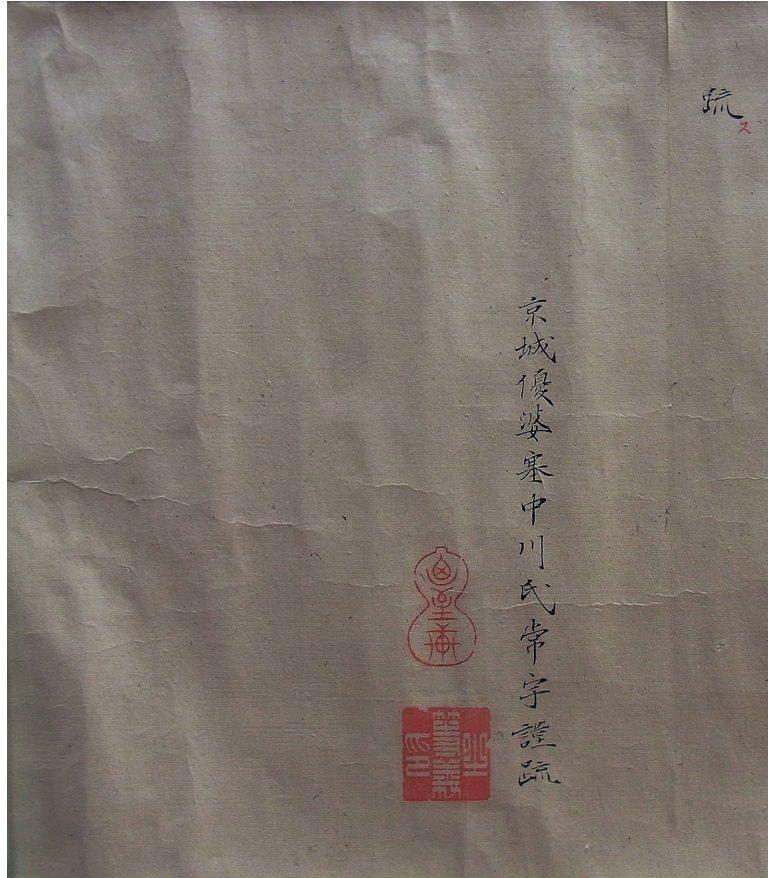 疏ス
京城優婆塞中川氏常宇謹疏